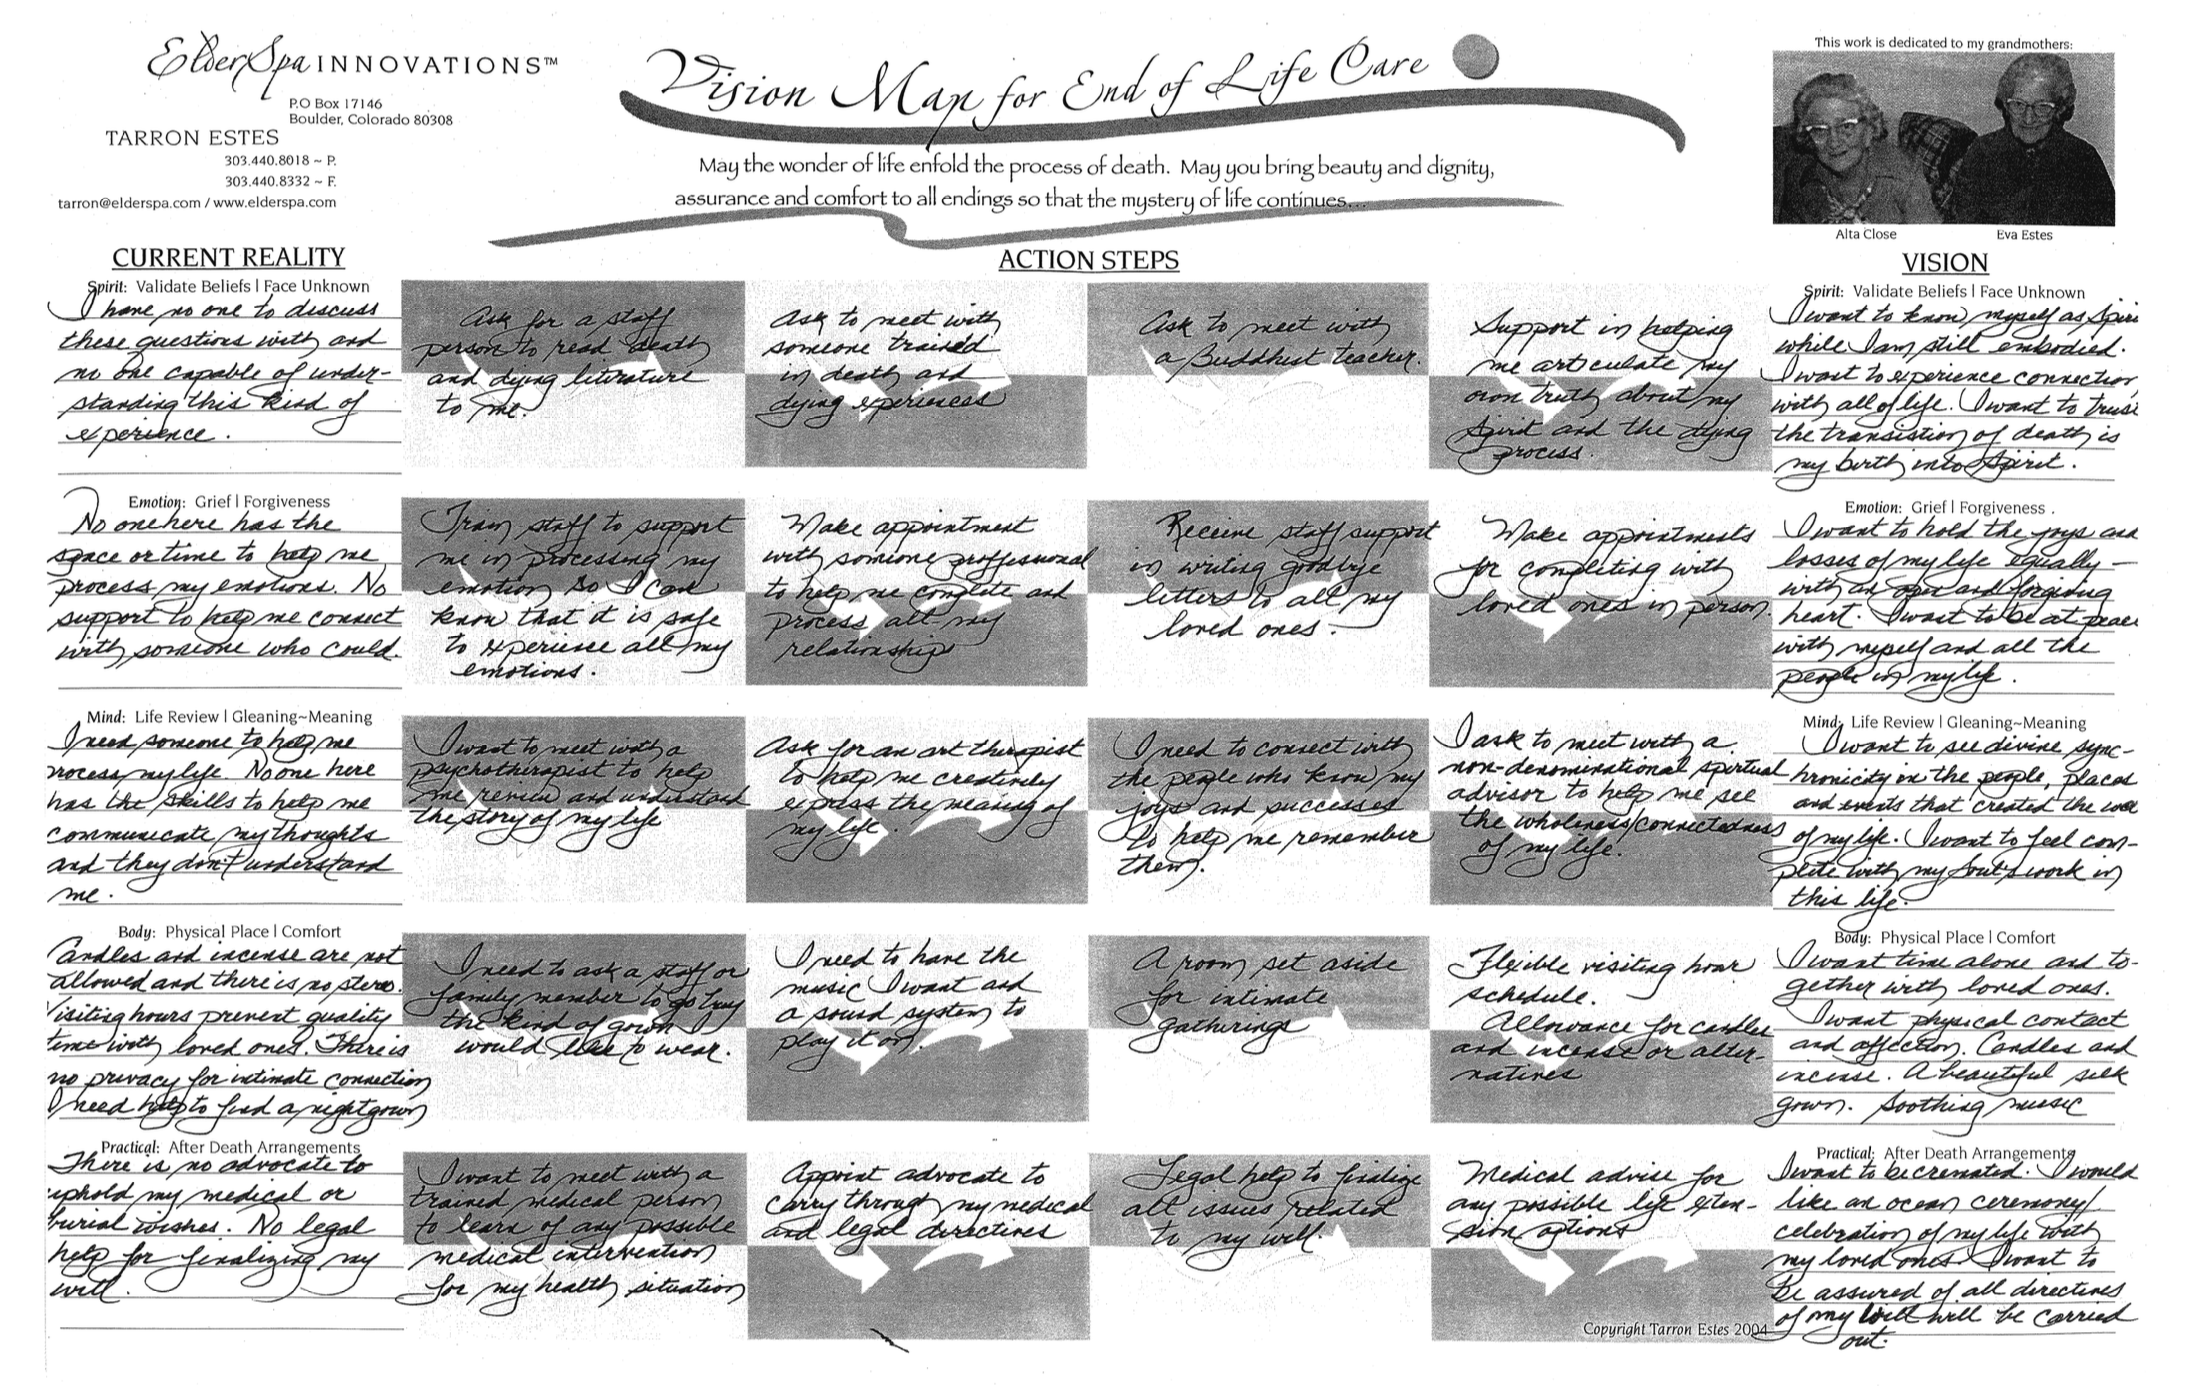 ElderSpa INNOVATIONS™
P.O Box 17146
Boulder, Colorado 80308
TARRON ESTES
303.440.8018 ~ P.
303.440.8332 ~ F.
tarron@elderspa.com / www.elderspa.com
Vision Map for End of Life Care
May the wonder of life enfold the process of death. May you bring beauty and dignity,
assurance and comfort to all endings so that the mystery of life continues...
This work is dedicated to my grandmothers:
Alta Close
Eva Estes
CURRENT REALITY
ACTION STEPS
VISION
Spirit: Validate Beliefs | Face Unknown
I have no one to discuss
these questions with and
no one capable of under-
standing this kind of
experience.
Ask for a staff
person to read death
and dying literature
to me.
Ask to meet with
someone trained
in death and
dying experiences
Ask to meet with
a Buddhist teacher.
Support in helping
me articulate my
own truth about my
Spirit and the dying
process.
Spirit: Validate Beliefs | Face Unknown
I want to know myself as Spiri
while I am still embodied.
I want to experience connection
with all of life. I want to trust
the transistion of death is
my birth into Spirit.
Emotion: Grief | Forgiveness
No one here has the
space or time to help me
process my emotions. No
support to help me connect
with someone who could.
Train staff to support
me in processing my
emotion so I can
know that it is safe
to experience all my
emotions.
Make appointment
with someone proffessional
to help me complete and
process all my
relationships
Receive staff support
in writing goodbye
letters to all my
loved ones.
Make appointments
for completing with
loved ones in person.
Emotion: Grief | Forgiveness .
I want to hold the joys and
losses of my life equally —
with an open and forgiving
heart. I want to be at peace
with myself and all the
people in my life.
Mind: Life Review | Gleaning~Meaning
I need someone to help me
rocess my life. No one here
has the skills to help me
communicate my thoughts
and they don't understand
me.
I want to meet with a
psychotherapist to help
me review and understand
the story of my life
Ask for an art therapist
to help me creatively
express the meaning of
my life.
I need to connect with
the people who know my
joys and successes
to help me remember
them.
I ask to meet with a
non-denominational spiritual
advisor to help me see
the wholeness/connectedness
of my life.
Mind: Life Review | Gleaning~Meaning
I want to see divine sync-
hronicity in the people, places
and events that created the
of my life. I want to feel com-
plete with my Soul's work in
this life.
Body: Physical Place | Comfort
Candles and incense are not
allowed and there is no stereo.
Visiting hours prevent quality
time with loved ones. There is
no privacy for intimate connection
I need help to find a nightgown
I need to ask a staff or
family member to go buy
the kind of gown I
would like to wear.
I need to have the
music I want and
a sound system to
play it on.
A room set aside
for intimate
gatherings
Flexible visiting hour
schedule.
Allowance for candles
and incense or alter-
natives
Body: Physical Place | Comfort
I want time alone and to-
gether with loved ones.
I want physical contact
and affection. Candles and
incense. A beautiful silk
gown. Soothing music
Practical: After Death Arrangements
There is no advocate to
uphold my medical or
burial wishes. No legal
help for finalizing my
will.
I want to meet with a
trained medical person
to learn of any possible
medical intervention
for my health situation
Appoint advocate to
carry through my medical
and legal directives
Legal help to finalize
all issues related
to my will.
Medical advise for
any possible life exten-
sion options
Practical: After Death Arrangements
I want to be cremated. I would
like an ocean ceremony/
celebration of my life with
my loved ones. I want to
be assured of all directives
of my will will be carried
out.
Copyright Tarron Estes 2004